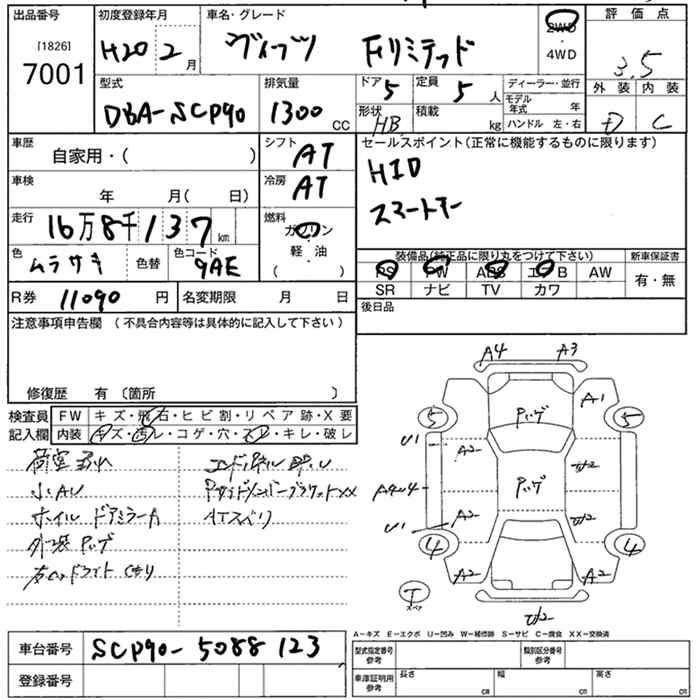 出品番号
[1826]
7001
初度登録年月
H20 2月
車名・グレード
ヴィッツ Fリミテッド
2WD
・
4WD
評価点
3.5
外装 内装
D C
型式
DBA-SCP90
排気量
1300 CC
ドア 5
定員 5 人
形状 HB
積載 kg
ディーラー・並行
モデル年式 年
ハンドル 左・右
車歴
自家用・( )
シフト AT
セールスポイント(正常に機能するものに限ります)
HID
スマートキー
車検
年 月( 日)
冷房 AT
走行 16万8千137km
燃料
ガソリン
軽・油
( )
色 ムラサキ 色替
色コード 9AE
装備品(純正品に限り丸をつけて下さい)
PS PW ABS エアB AW
SR ナビ TV カワ
新車保証書
有・無
R券 11090 円
名変期限 月 日
後日品
注意事項申告欄 (不具合内容等は具体的に記入して下さい)
修復歴 有 〔箇所 〕
検査員記入欄
FW キズ・飛石・ヒビ割・リペア跡・X要
内装 キズ・汚レ・コゲ・穴・スレ・キレ・破レ
小AU
ホイル ドアミラーカ
外装
右ヘッドライト
ATスベリ
A4 A3
A1
5 5
U1
A2
A2
U1
4 4
A2 A2
T
スペア
A-キズ E-エクボ U-凹み W-補修跡 S-サビ C-腐食 XX-交換済
車台番号 SCP90-5088123
登録番号
型式指定番号 参考
類別区分番号 参考
車庫証明用 参考
長さ cm
幅 cm
高さ cm